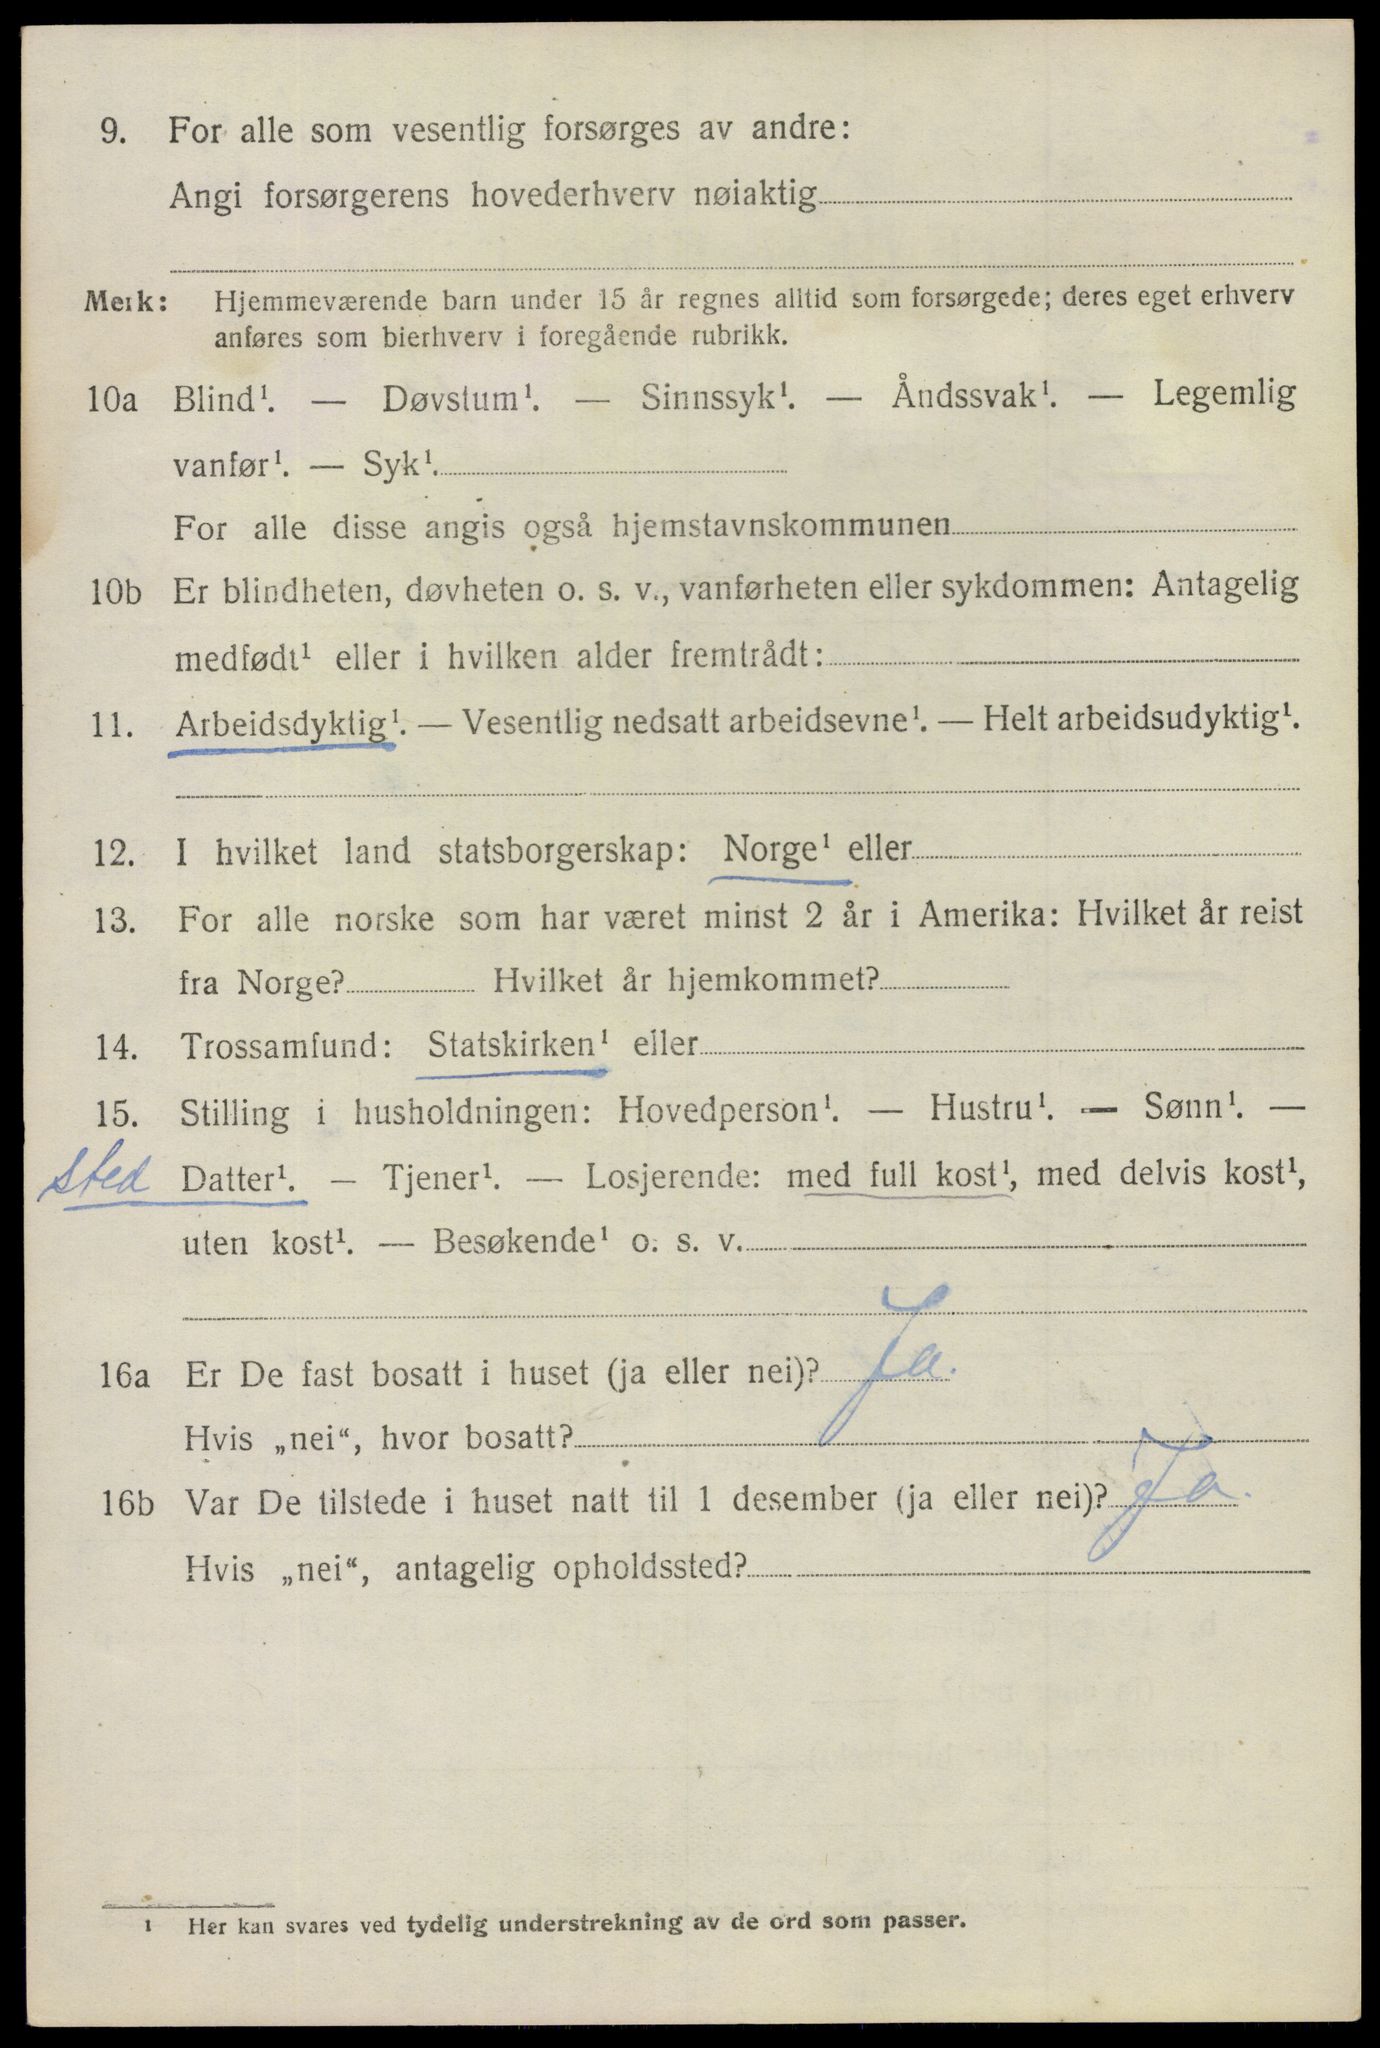 9. For alle som vesentlig forsørges av andre:
Angi forsørgerens hovederhverv nøiaktig
Merk: Hjemmeværende barn under 15 år regnes alltid som forsørgede; deres eget erhverv
anføres som bierhverv i foregående rubrikk.
10a Blind¹. — Døvstum¹. — Sinnssyk¹. — Åndssvak¹. — Legemlig
vanfør¹. — Syk¹.
For alle disse angis også hjemstavnskommunen
10b Er blindheten, døvheten o. s. v., vanførheten eller sykdommen: Antagelig
medfødt¹ eller i hvilken alder fremtrådt:
11. Arbeidsdyktig¹. — Vesentlig nedsatt arbeidsevne¹. — Helt arbeidsudyktig¹.
12. I hvilket land statsborgerskap: Norge¹ eller
13. For alle norske som har været minst 2 år i Amerika: Hvilket år reist
fra Norge? Hvilket år hjemkommet?
14. Trossamfund: Statskirken¹ eller
15. Stilling i husholdningen: Hovedperson¹. — Hustru¹. — Sønn¹. —
sted Datter¹. — Tjener¹. — Losjerende: med full kost¹, med delvis kost¹,
uten kost¹. — Besøkende¹ o. s. v.
16a Er De fast bosatt i huset (ja eller nei)? Ja.
Hvis „nei“, hvor bosatt?
16b Var De tilstede i huset natt til 1 desember (ja eller nei)? Ja.
Hvis „nei“, antagelig opholdssted?
¹ Her kan svares ved tydelig understrekning av de ord som passer.